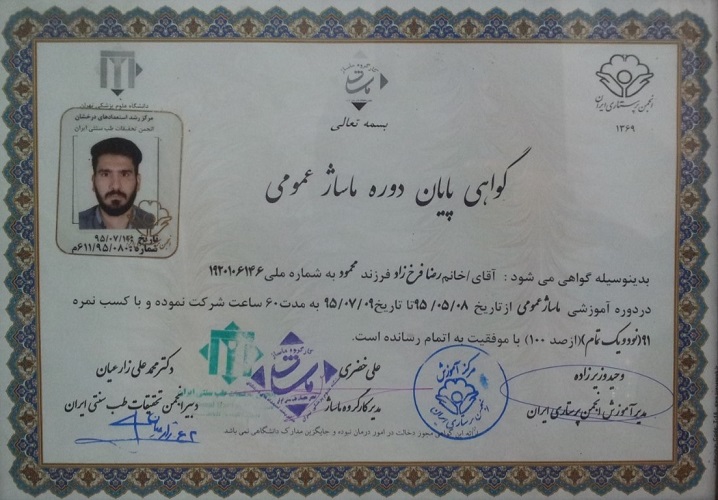 دانشگاه علوم پزشکی تهران
مرکز رشد استعدادهای درخشان
انجمن تحقیقات طب سنتی ایران
انجمن پرستاری ایران
۱۳۶۹
بسمه تعالی
گواهی پایان دوره ماساژ عمومی
تاریخ: ۹۵/۰۷/۱۹
شماره: ۶۱۱/۹۵/۰۸۰م
بدینوسیله گواهی می شود : آقای/خانم رضا فرخ زاد فرزند محمود به شماره ملی ۱۹۲۰۱۰۶۱۴۶
در دوره آموزشی ماساژ عمومی از تاریخ ۹۵/۰۵/۰۸ تا تاریخ ۹۵/۰۷/۰۹ به مدت ۶۰ ساعت شرکت نموده و با کسب نمره
۹۱(نود و یک تمام)(از صد ۱۰۰) با موفقیت به اتمام رسانده است.
وحید وزیرزاده
مدیر آموزش انجمن پرستاری ایران
مرکز آموزش
انجمن پرستاری ایران
علی خضری
مدیر کارگروه ماساژ
دکتر محمد علی زارعیان
دبیر انجمن تحقیقات طب سنتی ایران
مجوز دخالت در امور درمان نبوده و جایگزین مدارک دانشگاهی نمی باشد